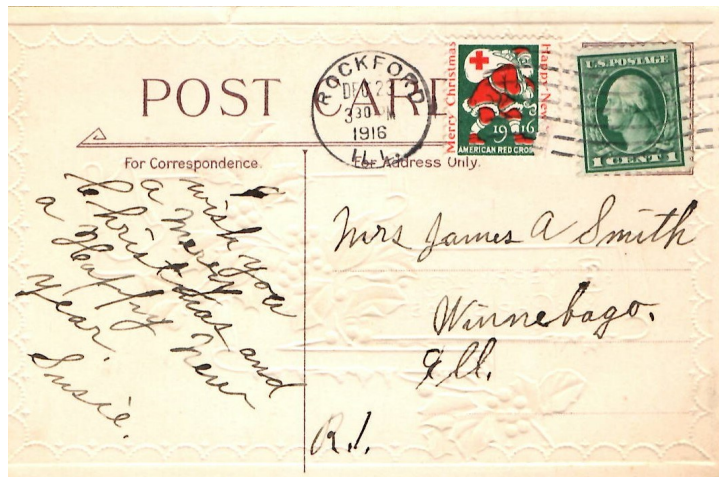 POST CARD
ROCKFORD
DEC 23
3 30 PM
1916
ILL.
Merry Christmas
Happy New
1916
AMERICAN RED CROSS
U.S. POSTAGE
1 CENT 1
For Correspondence.
For Address Only.
I
wish you
a merry
Christmas and
a Happy New
year.
Susie.
Mrs James A Smith
Winnebago.
Ill.
R.1.